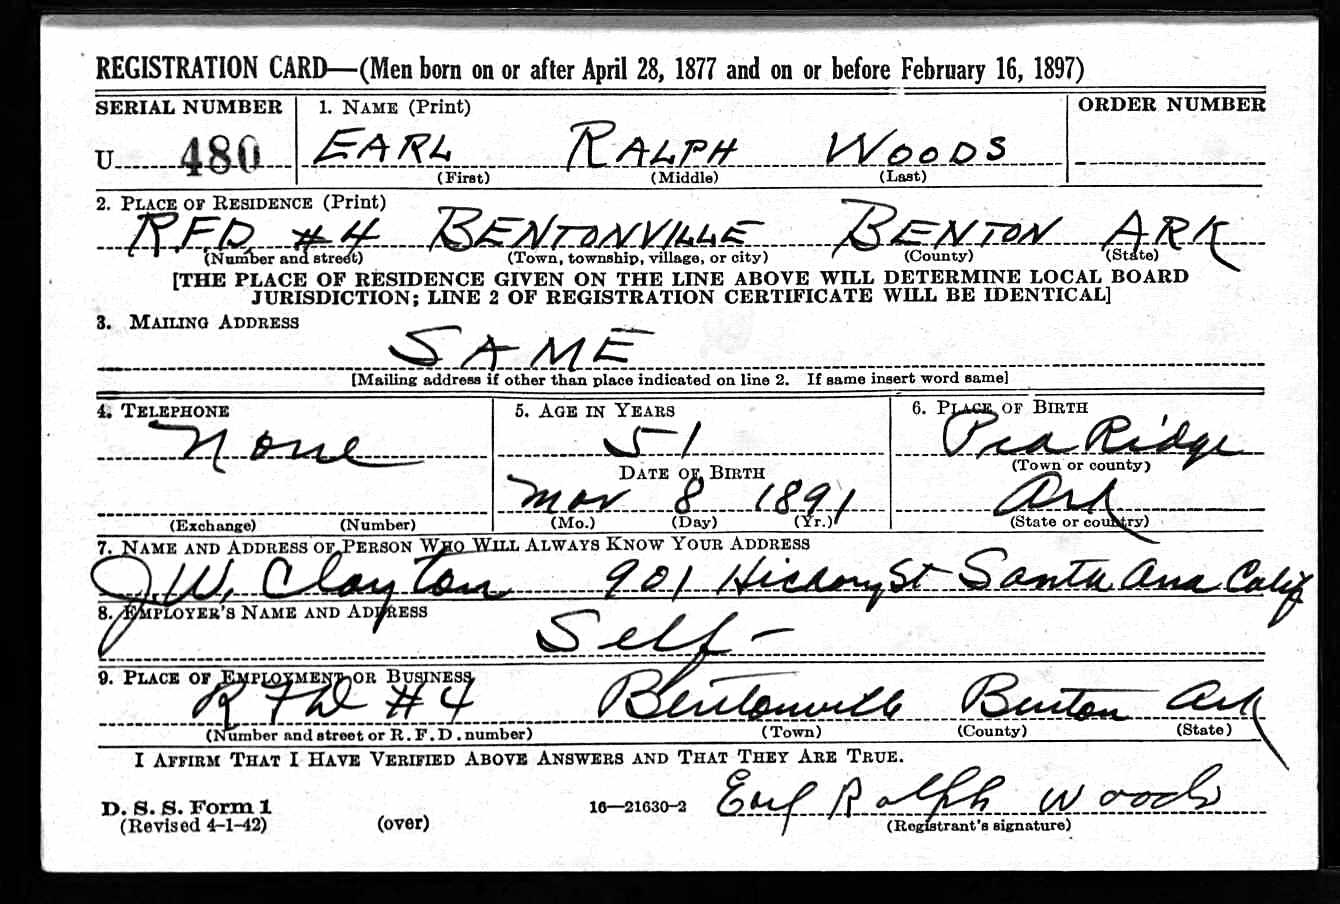 REGISTRATION CARD—(Men born on or after April 28, 1877 and on or before February 16, 1897)
SERIAL NUMBER 1. NAME (Print) ORDER NUMBER
U 480 EARL RALPH WOODS
(First) (Middle) (Last)
2. PLACE OF RESIDENCE (Print)
RFD #4 BENTONVILLE BENTON ARK
(Number and street) (Town, township, village, or city) (County) (State)
[THE PLACE OF RESIDENCE GIVEN ON THE LINE ABOVE WILL DETERMINE LOCAL BOARD
JURISDICTION; LINE 2 OF REGISTRATION CERTIFICATE WILL BE IDENTICAL]
3. MAILING ADDRESS
SAME
[Mailing address if other than place indicated on line 2. If same insert word same]
4. TELEPHONE 5. AGE IN YEARS 6. PLACE OF BIRTH
None 51 Pea Ridge
DATE OF BIRTH (Town or county)
Mar 8 1891 Ark
(Exchange) (Number) (Mo.) (Day) (Yr.) (State or country)
7. NAME AND ADDRESS OF PERSON WHO WILL ALWAYS KNOW YOUR ADDRESS
J.W. Clayton 901 Hickory St Santa Ana Calif
8. EMPLOYER'S NAME AND ADDRESS
Self -
9. PLACE OF EMPLOYMENT OR BUSINESS
RFD #4 Bentonville Benton Ark
(Number and street or R.F.D. number) (Town) (County) (State)
I AFFIRM THAT I HAVE VERIFIED ABOVE ANSWERS AND THAT THEY ARE TRUE.
D. S. S. Form 1 16—21630-2 Earl Ralph Woods
(Revised 4-1-42) (over) (Registrant's signature)